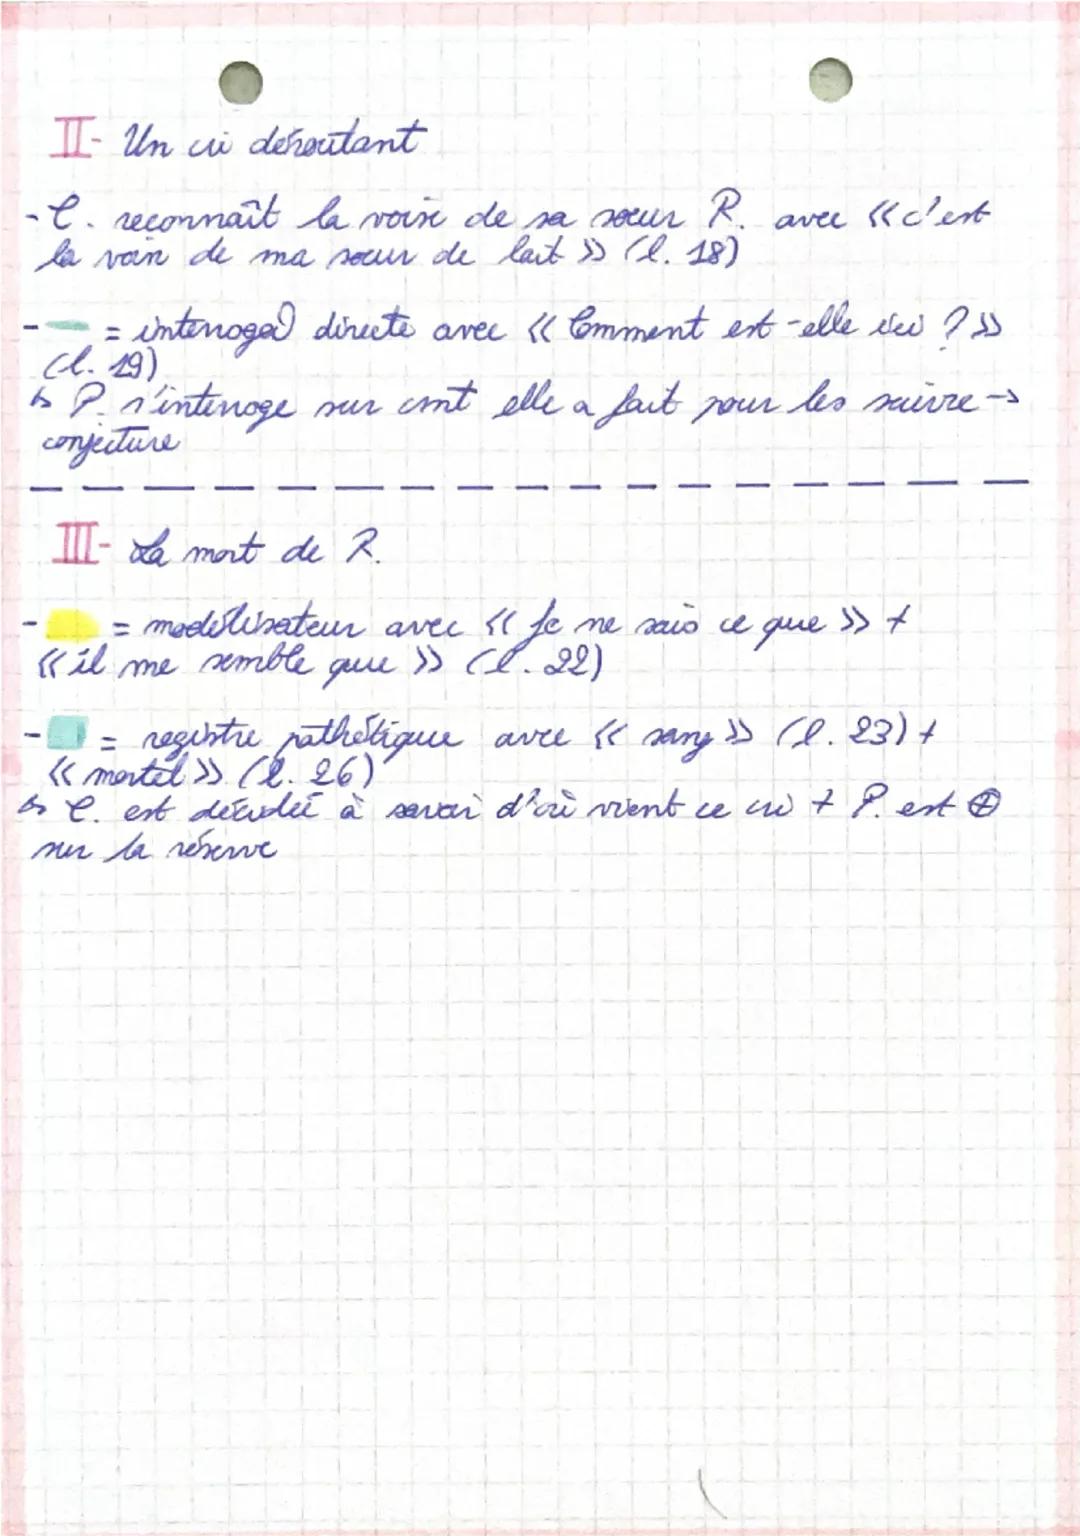 II- Un cri déroutant
- C. reconnaît la voix de sa sœur R. avec « c'est
la voix de ma sœur de lait » (l. 18)
- = interroga° directe avec « Comment est-elle ici ? »
(l. 19)
↳ P. s'interroge sur cmt elle a fait pour les suivre →
conjecture
III- La mort de R.
- = modélisateur avec « Je ne sais ce que » +
« il me semble que » (l. 22)
- = registre pathétique avec « sang » (l. 23) +
« mortel » (l. 26)
↳ C. est décidée à savoir d'où vient ce cri ≠ P. est ⊕
sur la réserve